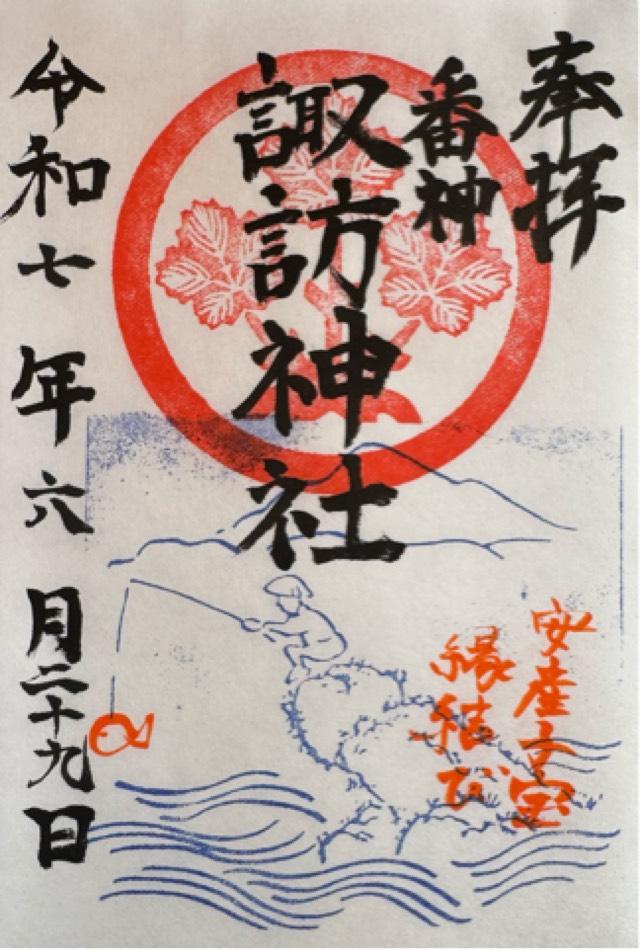 奉拝
番神
諏訪神社
安産子宝
縁結び
令和七年六月二十九日